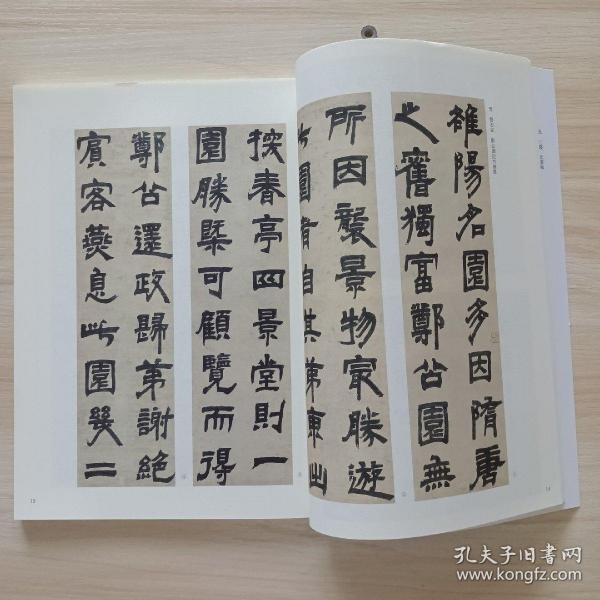 雒陽名園多因隋唐
之舊獨富鄭公園無
所因襲景物最勝遊
此園者自其第東出
探春亭四景堂則一
園勝槩可顧覽而得
鄭公還政歸第謝絕
賓客燕息此園幾二
15
14
孔夫子旧书网
www.kongfz.com